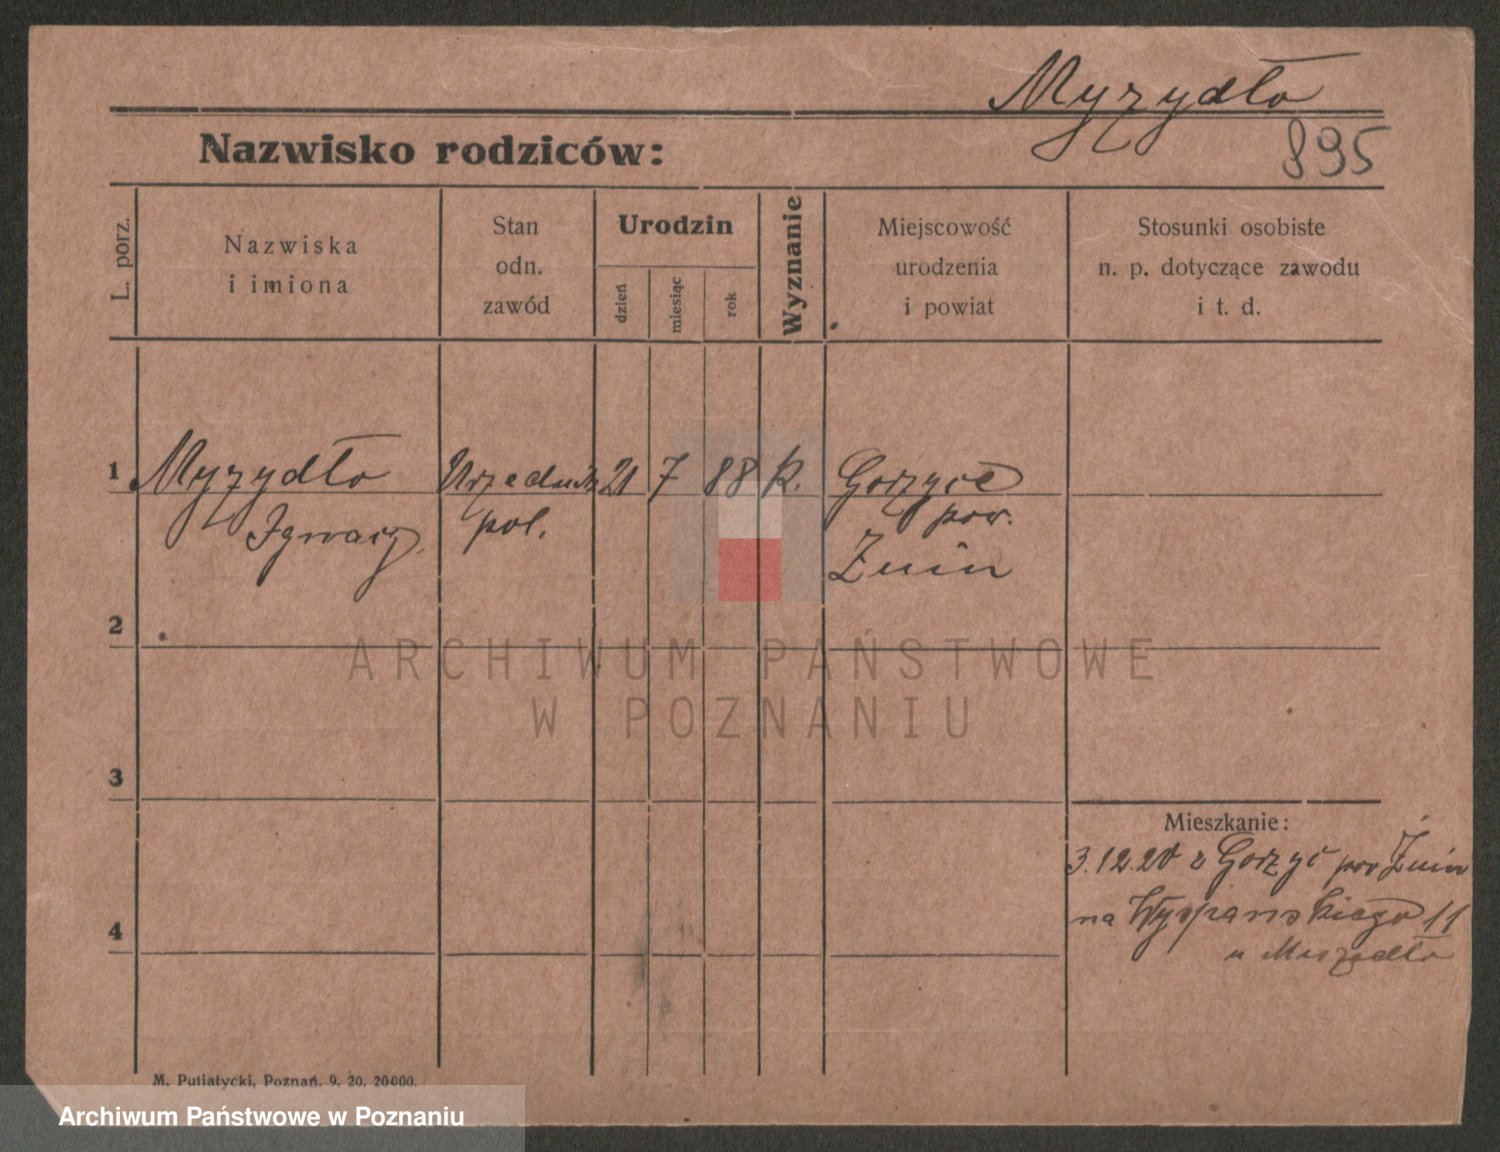 Myzydło
Nazwisko rodziców:
895
L. porz.
Nazwiska
i imiona
Stan
odn.
zawód
Urodzin
dzień
miesiąc
rok
Wyznanie
Miejscowość
urodzenia
i powiat
Stosunki osobiste
n. p. dotyczące zawodu
i t. d.
1
Myzydło
Ignacy
Urzędnik
pol.
21
7
88
k.
Gorzyce
pow.
Żnin
2
ARCHIWUM PAŃSTWOWE
W POZNANIU
3
Mieszkanie:
3.12.20 z Gorzyc pow Żnin
na Wyspianskiego 11
u
4
M. Putiatycki, Poznań. 9. 20. 20000.
Archiwum Państwowe w Poznaniu